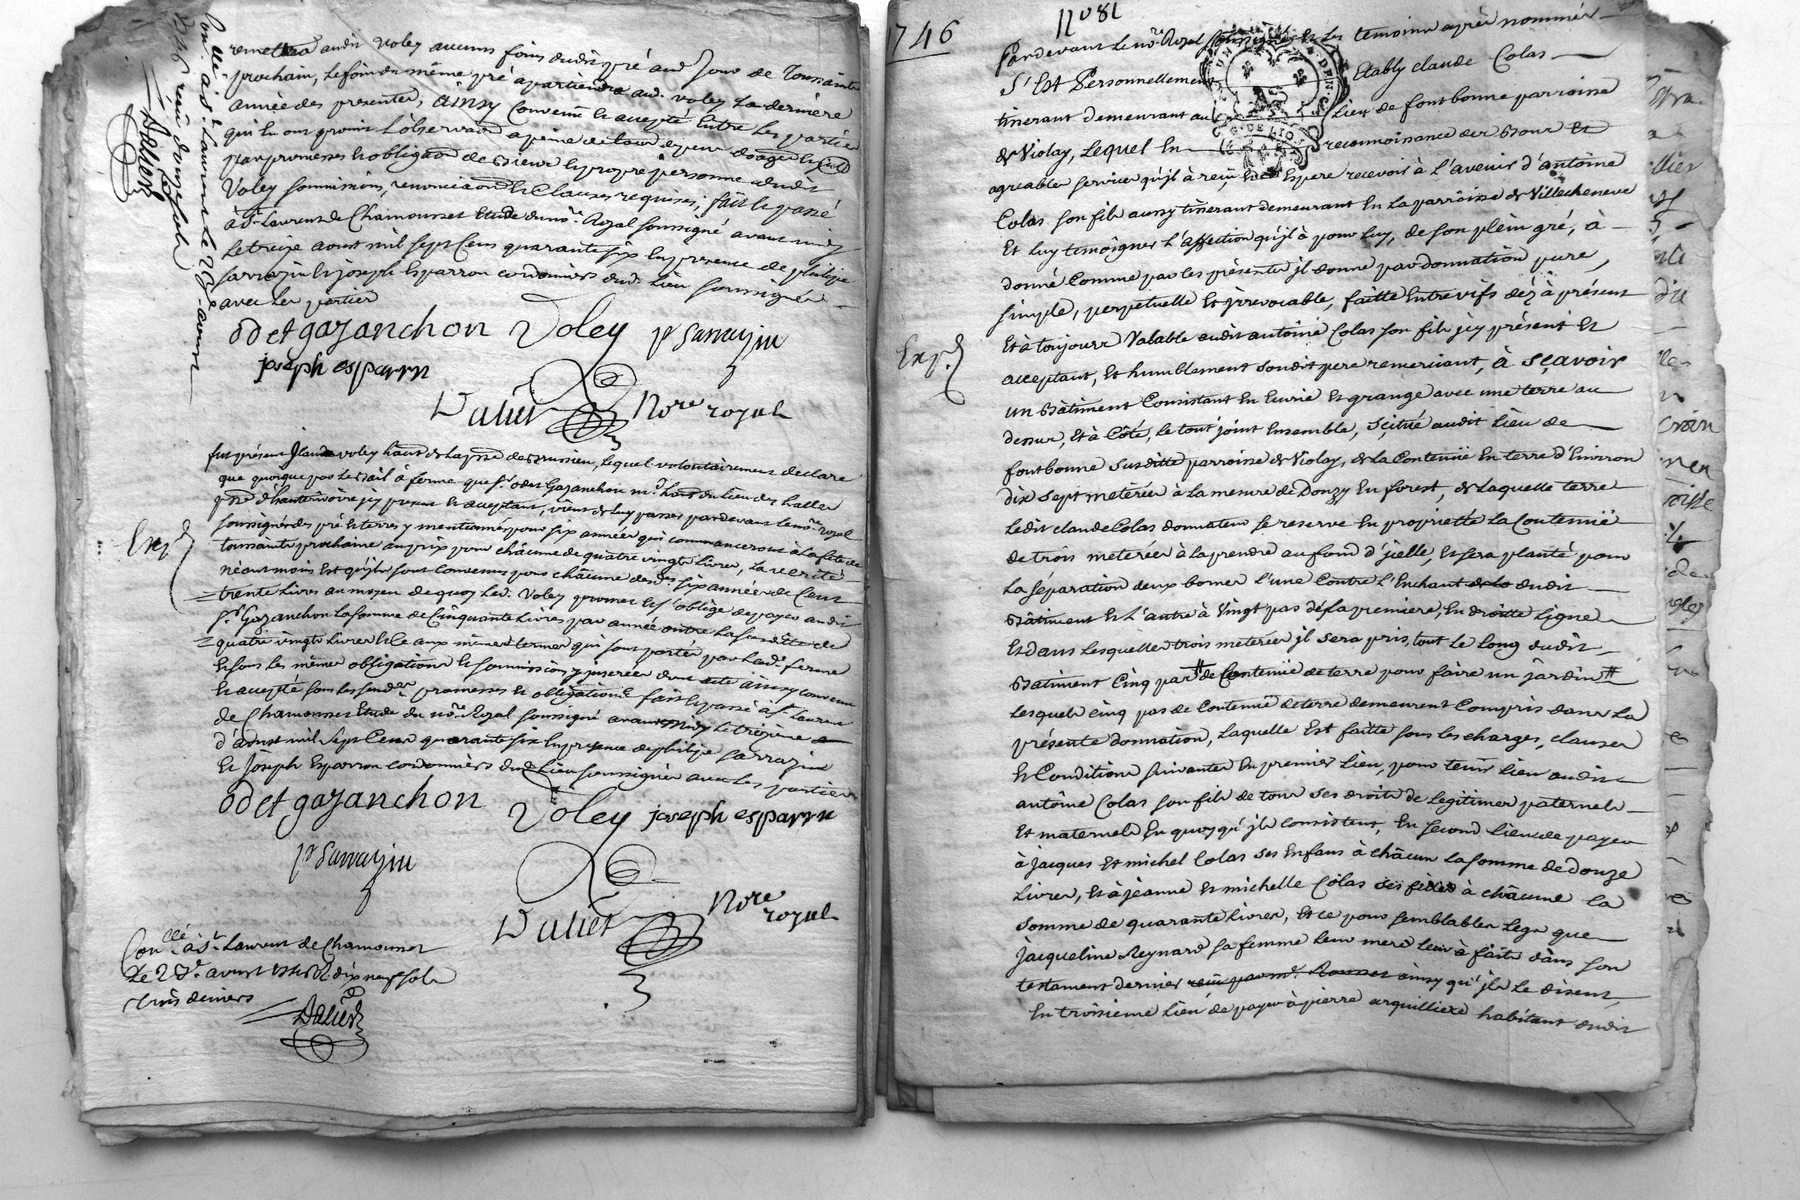 remettra audit Voley aucuns foins dudit pré aud. jour de Toussaints
prochain, le foin du même pré apartiendra aud. Voley la derniere
année des presentes, ainsy convenu et accepté entre les parties
qui en ont promis l'observaon à peine de tous depens domages
par promesses et obligaon de Voley
Voley soumissions, renonciaon et clauses requises; fait et passé
à St. Laurent de Chamousset Etude du nore. Royal soussigné avant midy
le treize aoust mil sept Cens quarante six En presence de philipe
sarrazin et joseph Esparron cordonniers dud. Lieu soussignés
avec les parties
odet gazanchon Voley pr Sarrazin
joseph esparrn
Daliet Nore royal
fut présent Claude voley habt. de la psse de Brussieu, lequel volontairement declare
que quoique par le Bail à ferme que sr. odet Gazanchon md. habt. du Lieu des halles
psse d'hauterivoire icy present et acceptant, vient de luy passer pardevant le nore. royal
soussigné des pré et terres y mentionnés pour six années qui commanceront à la fête de
toussaints prochaine au prix pour châcune de quatre vingts Livres, la verité
néantmoins Est qu'ils sont convenus pour châcune desdes. six années de Cent
trente Livres au moyen de quoy led. Voley promet et s'oblige de payer audit
sr. Gazanchon la somme de Cinquante Livres par année outre la susditte de
quatre vingts Livres et ce aux mêmes termes qui sont portés par lad. ferme
et sous les mêmes obligations et soumissions y inserées dont acte ainsy convenu
et accepté sous les promesses et obligations fait et passé à St. Laurent
de Chamousset Etude du nore. Royal soussigné avant midy le treizieme
d'aoust mil sept Cens quarante six En presence de philipe sarrazin
et joseph Esparron cordonniers dud. Lieu soussignés avec les parties
odet gazanchon Voley joseph esparrn
pr Sarrazin
Daliet Nore royal
Conllé à St. Laurent de Chamousset
Le aoust 1746 Rt dix neuf sols
trois deniers
Daliet
Expd.
746
No 81
Pardevant le nore. Royal soussigné et les temoins après nommés
S'Est Personnellement Etably claude Colas
tisserant demeurant au Lieu de fontbonne parroisse
de Violay, Lequel En reconnoissance des bons et
agreables services qu'il à reçu, et Espere recevoir à l'avenir d'antoine
Colas son fils aussy tisserant demeurant En la parroisse de Villecheneve
Et luy temoigner l'affection qu'il à pour luy, de son plein gré, à
donné comme par les présentes il donne par donnation pure,
simple, perpetuelle et irrevocable, faitte entre vifs dez à présent
et à toujours Valable audit antoine Colas son fils icy présent et
acceptant, et humblement sondit pere remerciant, à sçavoir
un Bâtiment Consistant en Ecurie et grange avec une terre au
dessus, et à Côté, le tout joint ensemble, scitué audit lieu de
fontbonne susditte parroisse de Violay, de la Contenuë en terre d'Environ
dix sept meterées à la mesure de Donzy en forest, de laquelle terre
ledit claude Colas donnateur se reserve en proprieté la Contenuë
de trois meterées à la prendre au fond d'icelle, et sera planté pour
la séparation deux bornes l'une Contre l'Enchant dudit
Bâtiment et l'autre à vingt pas de la premiere, en droitte ligne
Et dans lesquelles trois meterées il sera pris tout le long dudit
Bâtiment Cinq pas # de Contenuë de terre pour faire un jardin #
Lesquels cinq pas de Contenuë de terre demeurent Compris dans la
présente donnation, laquelle est faitte sous les charges, clauses
et Conditions suivantes En premier lieu, pour tenir lieu audit
antoine Colas son fils de tous ses droits de legitimes paternels
et maternels En quoy qu'ils consistent, En second lieu de payer
à jacques et michel Colas ses Enfans à châcun la somme de douze
Livres, et à jeanne et michelle Colas ses filles à châcune la
somme de quarante Livres, et ce pour semblables legs que
jacqueline Reynard sa femme leur mere leur à faits dans son
testament dernier ainsy qu'ils le disent,
En troisieme lieu de payer à pierre arquilliere habitant audit
Expd.